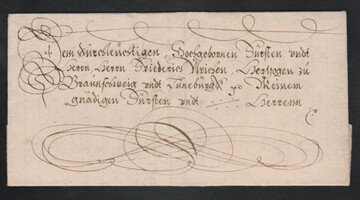 Dem Durchleuchtigen Hochgebornen Fürsten undt
Herrn, Herrn Friederich Ulrichen, Hertzogen zu
Braunschweig undt Lüneburgk Meinem
gnädigen Fürsten undt Herrenn